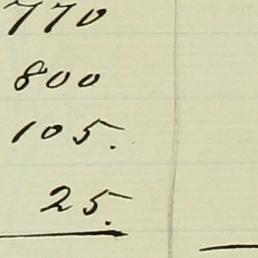 770
800
105.
25.